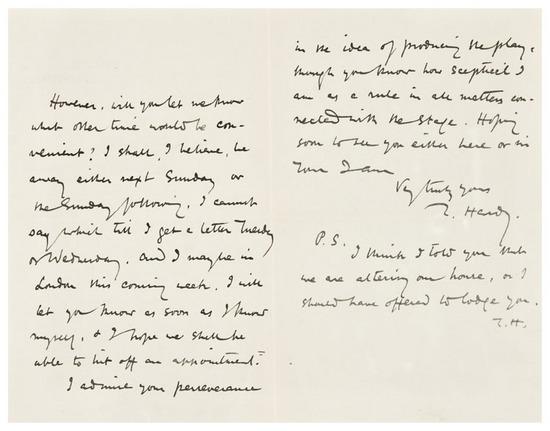 However, will you let me know
what other time would be con-
venient? I shall, I believe, be
away either next Sunday or
the Sunday following. I cannot
say which till I get a letter Tuesday
or Wednesday. And I may be in
London this coming week. I will
let you know as soon as I know
myself, & I hope we shall be
able to hit off an appointment.
I admire your perseverance
in the idea of producing the play,
though you know how sceptical I
am as a rule in all matters con-
nected with the stage. Hoping
soon to see you either here or in
Town I am
Vy truly yours
T. Hardy.
P.S.
I think I told you that
we are altering our house, or I
should have offered to lodge you.
T.H.